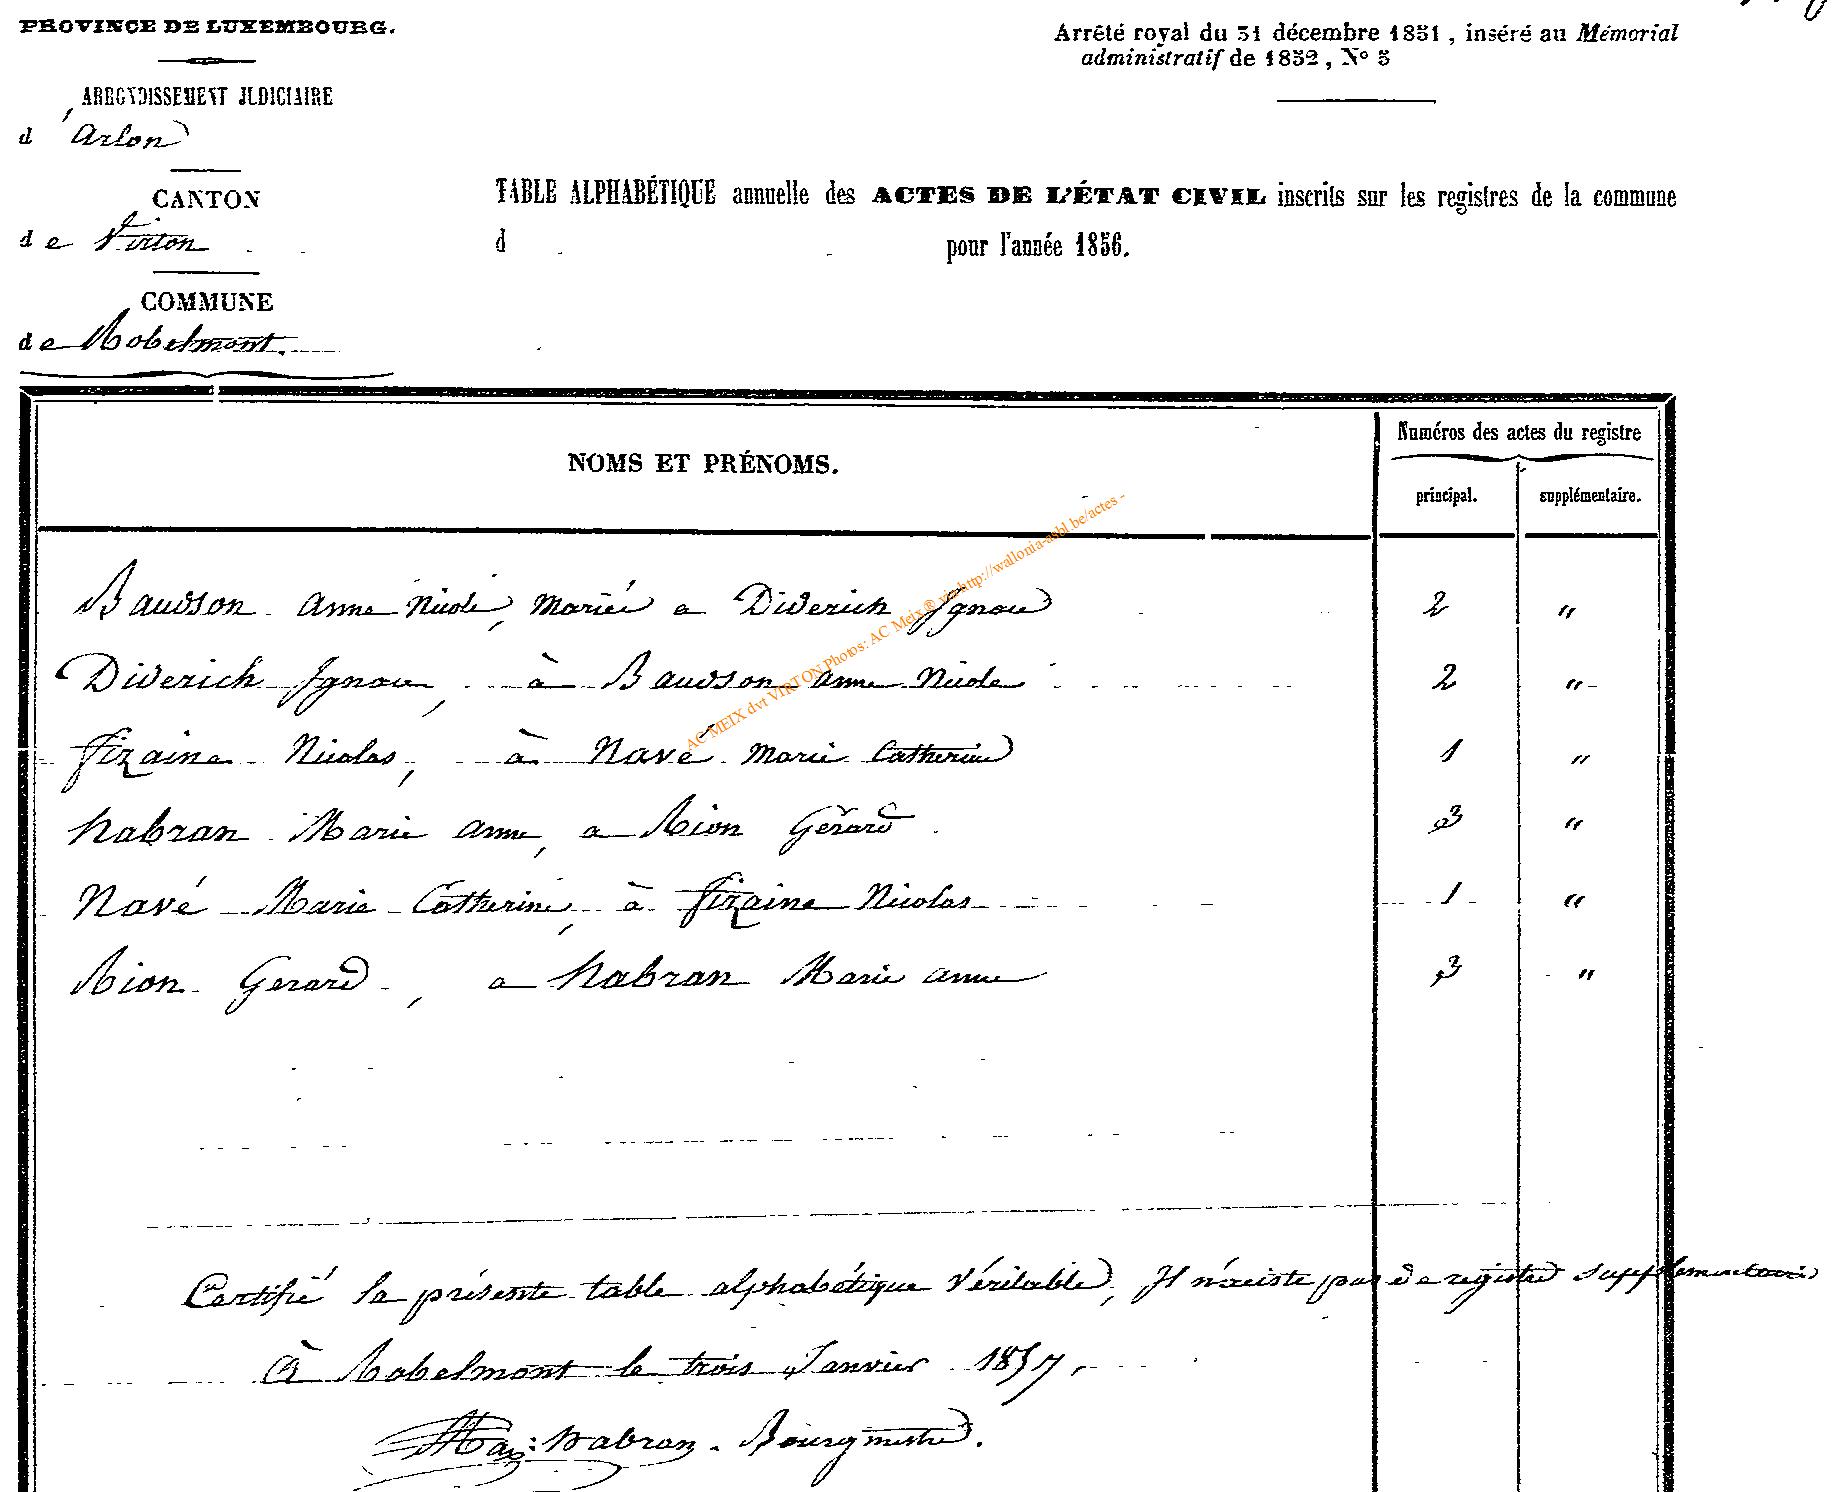 PROVINCE DE LUXEMBOURG.
Arrêté royal du 31 décembre 1831, inséré au Mémorial
administratif de 1832, N° 3
ARRONDISSEMENT JUDICIAIRE
d'Arlon
CANTON
de Virton
COMMUNE
de Robelmont.
TABLE ALPHABÉTIQUE annuelle des ACTES DE L'ÉTAT CIVIL inscrits sur les registres de la commune
d pour l'année 1856.
NOMS ET PRÉNOMS.
Numéros des actes du registre
principal. supplémentaire.
Baudson Anne Nicole, Mariée a Diderich Ignace 2 "
Diderich Ignace, à Baudson anne Nicole 2 "
fizaine Nicolas, à Navé Marie Catherine 1 "
habran Marie anne, a Rion Gérard 3 "
Navé Marie Catherine, à fizaine Nicolas 1 "
Rion Gerard, a habran Marie anne 3 "
AC MEIX dvt VIRTON Photos: AC Meix® via http://wallonia-asbl.be/actes -
Certifié la présente table alphabétique véritable, Il n'existe pas de registre supplémentaire
à Robelmont le trois Janvier 1857.
habran Bourgmestre.